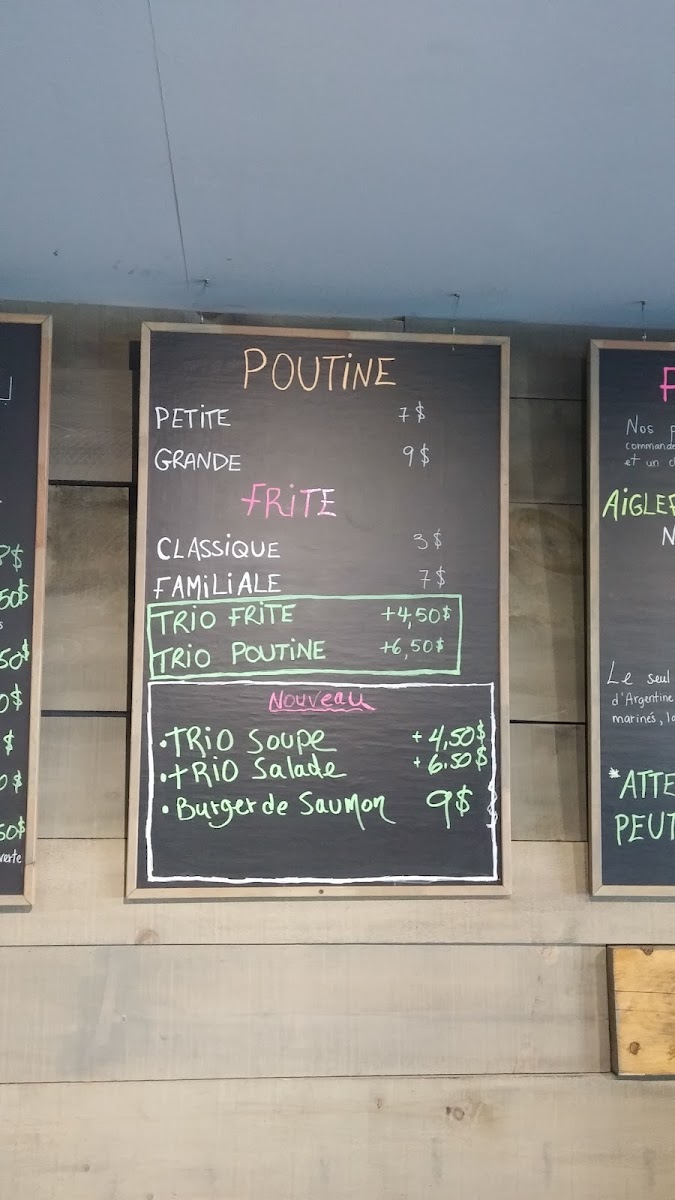 POUTINE
PETITE 7$
GRANDE 9$
FRITE
CLASSIQUE 3$
FAMILIALE 7$
TRIO FRITE +4,50$
TRIO POUTINE +6,50$
Nouveau
• TRIO Soupe + 4,50$
• tRIO Salade + 6.50$
• Burger de Saumon 9$
50$
50$
0$
$
0$
50$
Nos
commande
et un
AIGLEF
Le seul
d'Argentine
marinés, la
*ATTE
PEUT